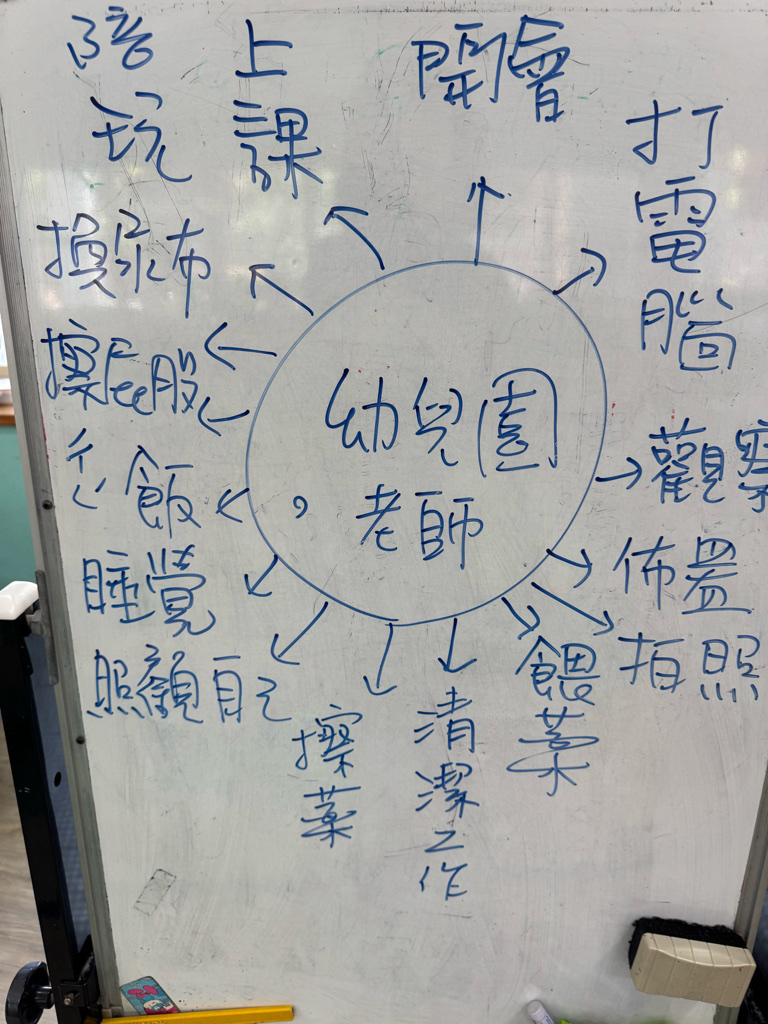 幼兒園
老師
陪玩
上課
開會
打電腦
換尿布
擦屁股
飯
睡覺
照顧自己
擦藥
清潔工作
餵藥
拍照
佈置
觀察